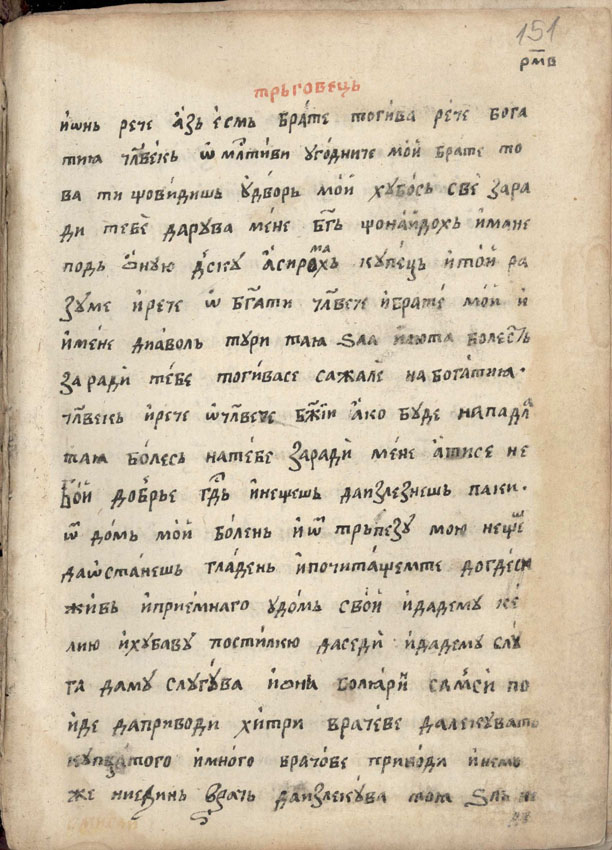 151
рм҃в
трьговець
ѝѡнь рече а҆зь е҆смь бра́те тогива ре́че бога
тиꙗ чл҃векь ѿ мл҃тиви угодниче мо́й брате то
ва ти що видишь у҆дворь мо́й хубось све̏ зара
ди тебѐ дарува мене бг҃ь що на́йдохь и҆мане
подь ѡ҆ную дъ́ску а҆ сиромахь купець и҆ то́й ра
зуме и҆ рече ѿ бг҃ати чл҃вече и҆ брате́ мо́й и҆
и҆ мене диаволь тури таꙗ ѕла болесть
заради́ те́бе тогивасе сажале на бога́тиꙗ ·
чл҃векь и҆ рече ѽ чл҃вече бж҃їи а҆ко буде нападла
таꙗ бо́лесь на тебе заради̏ мене а҆ ти се не
бо́й до́брье гд҃ь и҆ нещешь да и҆злезнешь паки ·
ѿ домь мо́й бо́лень и҆ ѿ тръпезу̏ мою нещешь
да ѡ҆станешь гла́день и҆ почита́ щемте догде́ си
живь и҆ прие́мнаго у҆до́мь сво́й и҆ даде му ке
лию и҆ хубаву постилкю да седѝ и҆ даде му слу
га да му̏ слугу́ва и҆ ѡна болюари́ самси́ по
и҆де да приводи хи́три врачеве да лекувать
купцатого и҆ мно́го врачове приво́ди и҆ нем
же ние҆динь врачь да и҆злекува тоꙗ ѕль